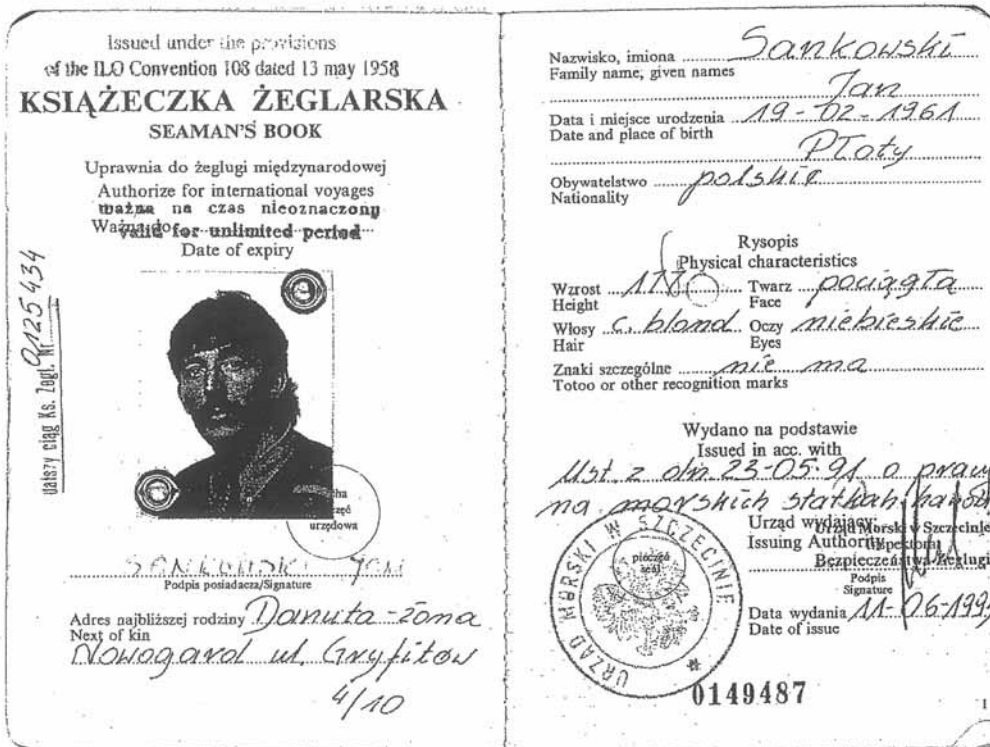 Issued under the provisions
of the ILO Convention 108 dated 13 may 1958
KSIĄŻECZKA ŻEGLARSKA
SEAMAN'S BOOK
Uprawnia do żeglugi międzynarodowej
Authorize for international voyages
ważna na czas nieoznaczony
Ważna do
valid for unlimited period
Date of expiry
dalszy ciąg Ks. Żegl. Nr 0125434
urzędowa
SANKOWSKI JAN
Podpis posiadacza/Signature
Adres najbliższej rodziny Danuta - żona
Next of kin
Nowogard ul. Gryfitów
4/10
Nazwisko, imiona Sankowski
Family name, given names
Jan
Data i miejsce urodzenia 19-02-1961
Date and place of birth
Płoty
Obywatelstwo polskie
Nationality
Rysopis
Physical characteristics
Wzrost Twarz pociągła
Height Face
Włosy c. blond Oczy niebieskie
Hair Eyes
Znaki szczególne nie ma
Totoo or other recognition marks
Wydano na podstawie
Issued in acc. with
Ust. z dn. 23-05-91 o pracy
na morskich statkah handl
Urząd wydający:
Urząd Morski w Szczecinie
Issuing Authority
Inspektorat
Bezpieczeństwa Żeglugi
Podpis
Signature
Data wydania 11-06-199
Date of issue
URZĄD MORSKI W SZCZECINIE
pieczęć
seal
0149487
1